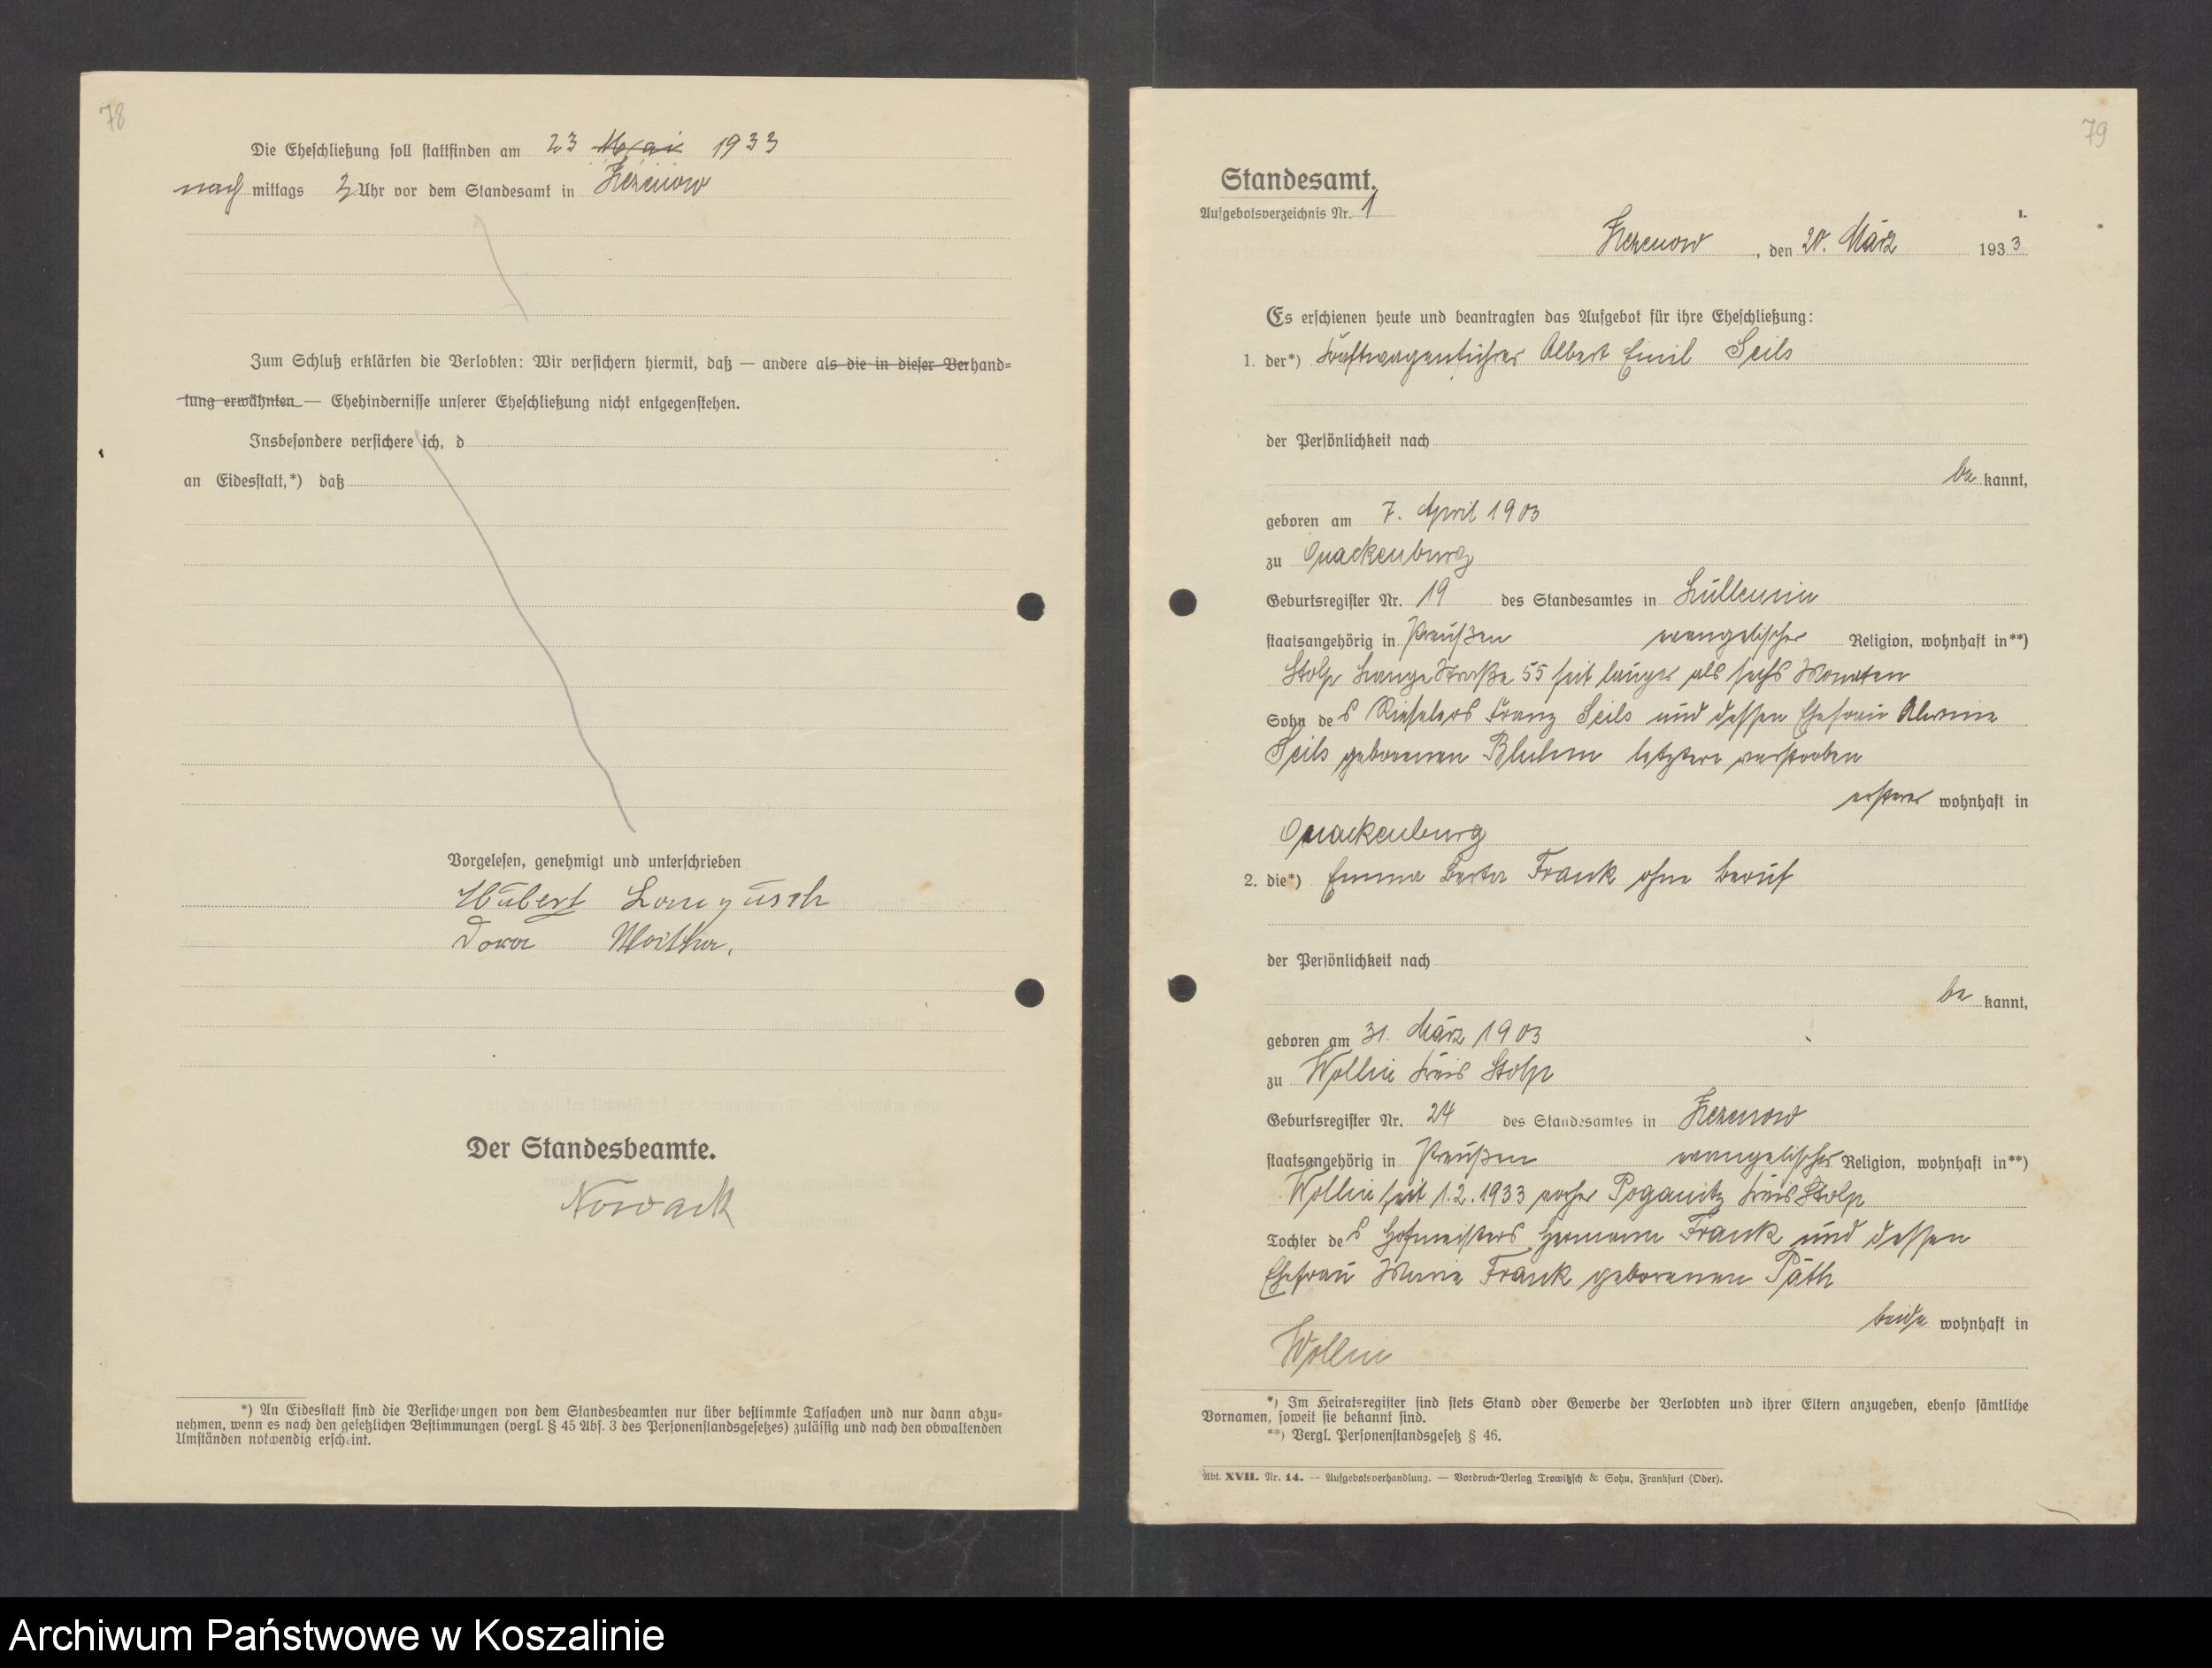 78
Die Eheschließung soll stattfinden am 23 Mai 1933
nach mittags Uhr vor dem Standesamt in Zezenow
Zum Schluß erklärten die Verlobten: Wir versichern hiermit, daß — andere als die in dieser Verhand-
lung erwähnten — Ehehindernisse unserer Eheschließung nicht entgegenstehen.
Insbesondere versichere ich, d
an Eidesstatt,*) daß
Vorgelesen, genehmigt und unterschrieben
Hubert
Dora
Der Standesbeamte.
Nowack
*) An Eidesstatt sind die Versicherungen von dem Standesbeamten nur über bestimmte Tatsachen und nur dann abzu-
nehmen, wenn es nach den gesetzlichen Bestimmungen (vergl. § 45 Abs. 3 des Personenstandsgesetzes) zulässig und nach den obwaltenden
Umständen notwendig erscheint.
79
Standesamt.
Aufgebotsverzeichnis Nr. 1
I.
Zezenow, den 20. März 1933
Es erschienen heute und beantragten das Aufgebot für ihre Eheschließung:
1. der*) Kraftwagenführer Albert Emil Seils
der Persönlichkeit nach
be kannt,
geboren am 7. April 1903
zu Quackenburg
Geburtsregister Nr. 19 des Standesamtes in Lüllemin
staatsangehörig in Preußen evangelischer Religion, wohnhaft in**)
Stolp Lange Straße 55 seit länger als sechs Monaten
Sohn des Franz Seils und dessen Ehefrau Alwine
Seils geborenen Bluhm letztere verstorben
ersterer wohnhaft in
Quackenburg
2. die*) Emma Berta Frank ohne Beruf
der Persönlichkeit nach
be kannt,
geboren am 31. März 1903
zu Wollin Kreis Stolp
Geburtsregister Nr. 24 des Standesamtes in Zezenow
staatsangehörig in Preußen evangelischer Religion, wohnhaft in**)
Wollin seit 1.2.1933 vorher Poganitz Kreis Stolp
Tochter des Hofmeisters Hermann Frank und dessen
Ehefrau Marie Frank geborenen Päth
beide wohnhaft in
Wollin
*) Im Heiratsregister sind stets Stand oder Gewerbe der Verlobten und ihrer Eltern anzugeben, ebenso sämtliche
Vornamen, soweit sie bekannt sind.
**) Vergl. Personenstandsgesetz § 46.
Abt. XVII. Nr. 14. — Aufgebotsverhandlung. — Vordruck-Verlag Trowitzsch & Sohn, Frankfurt (Oder).
Archiwum Państwowe w Koszalinie